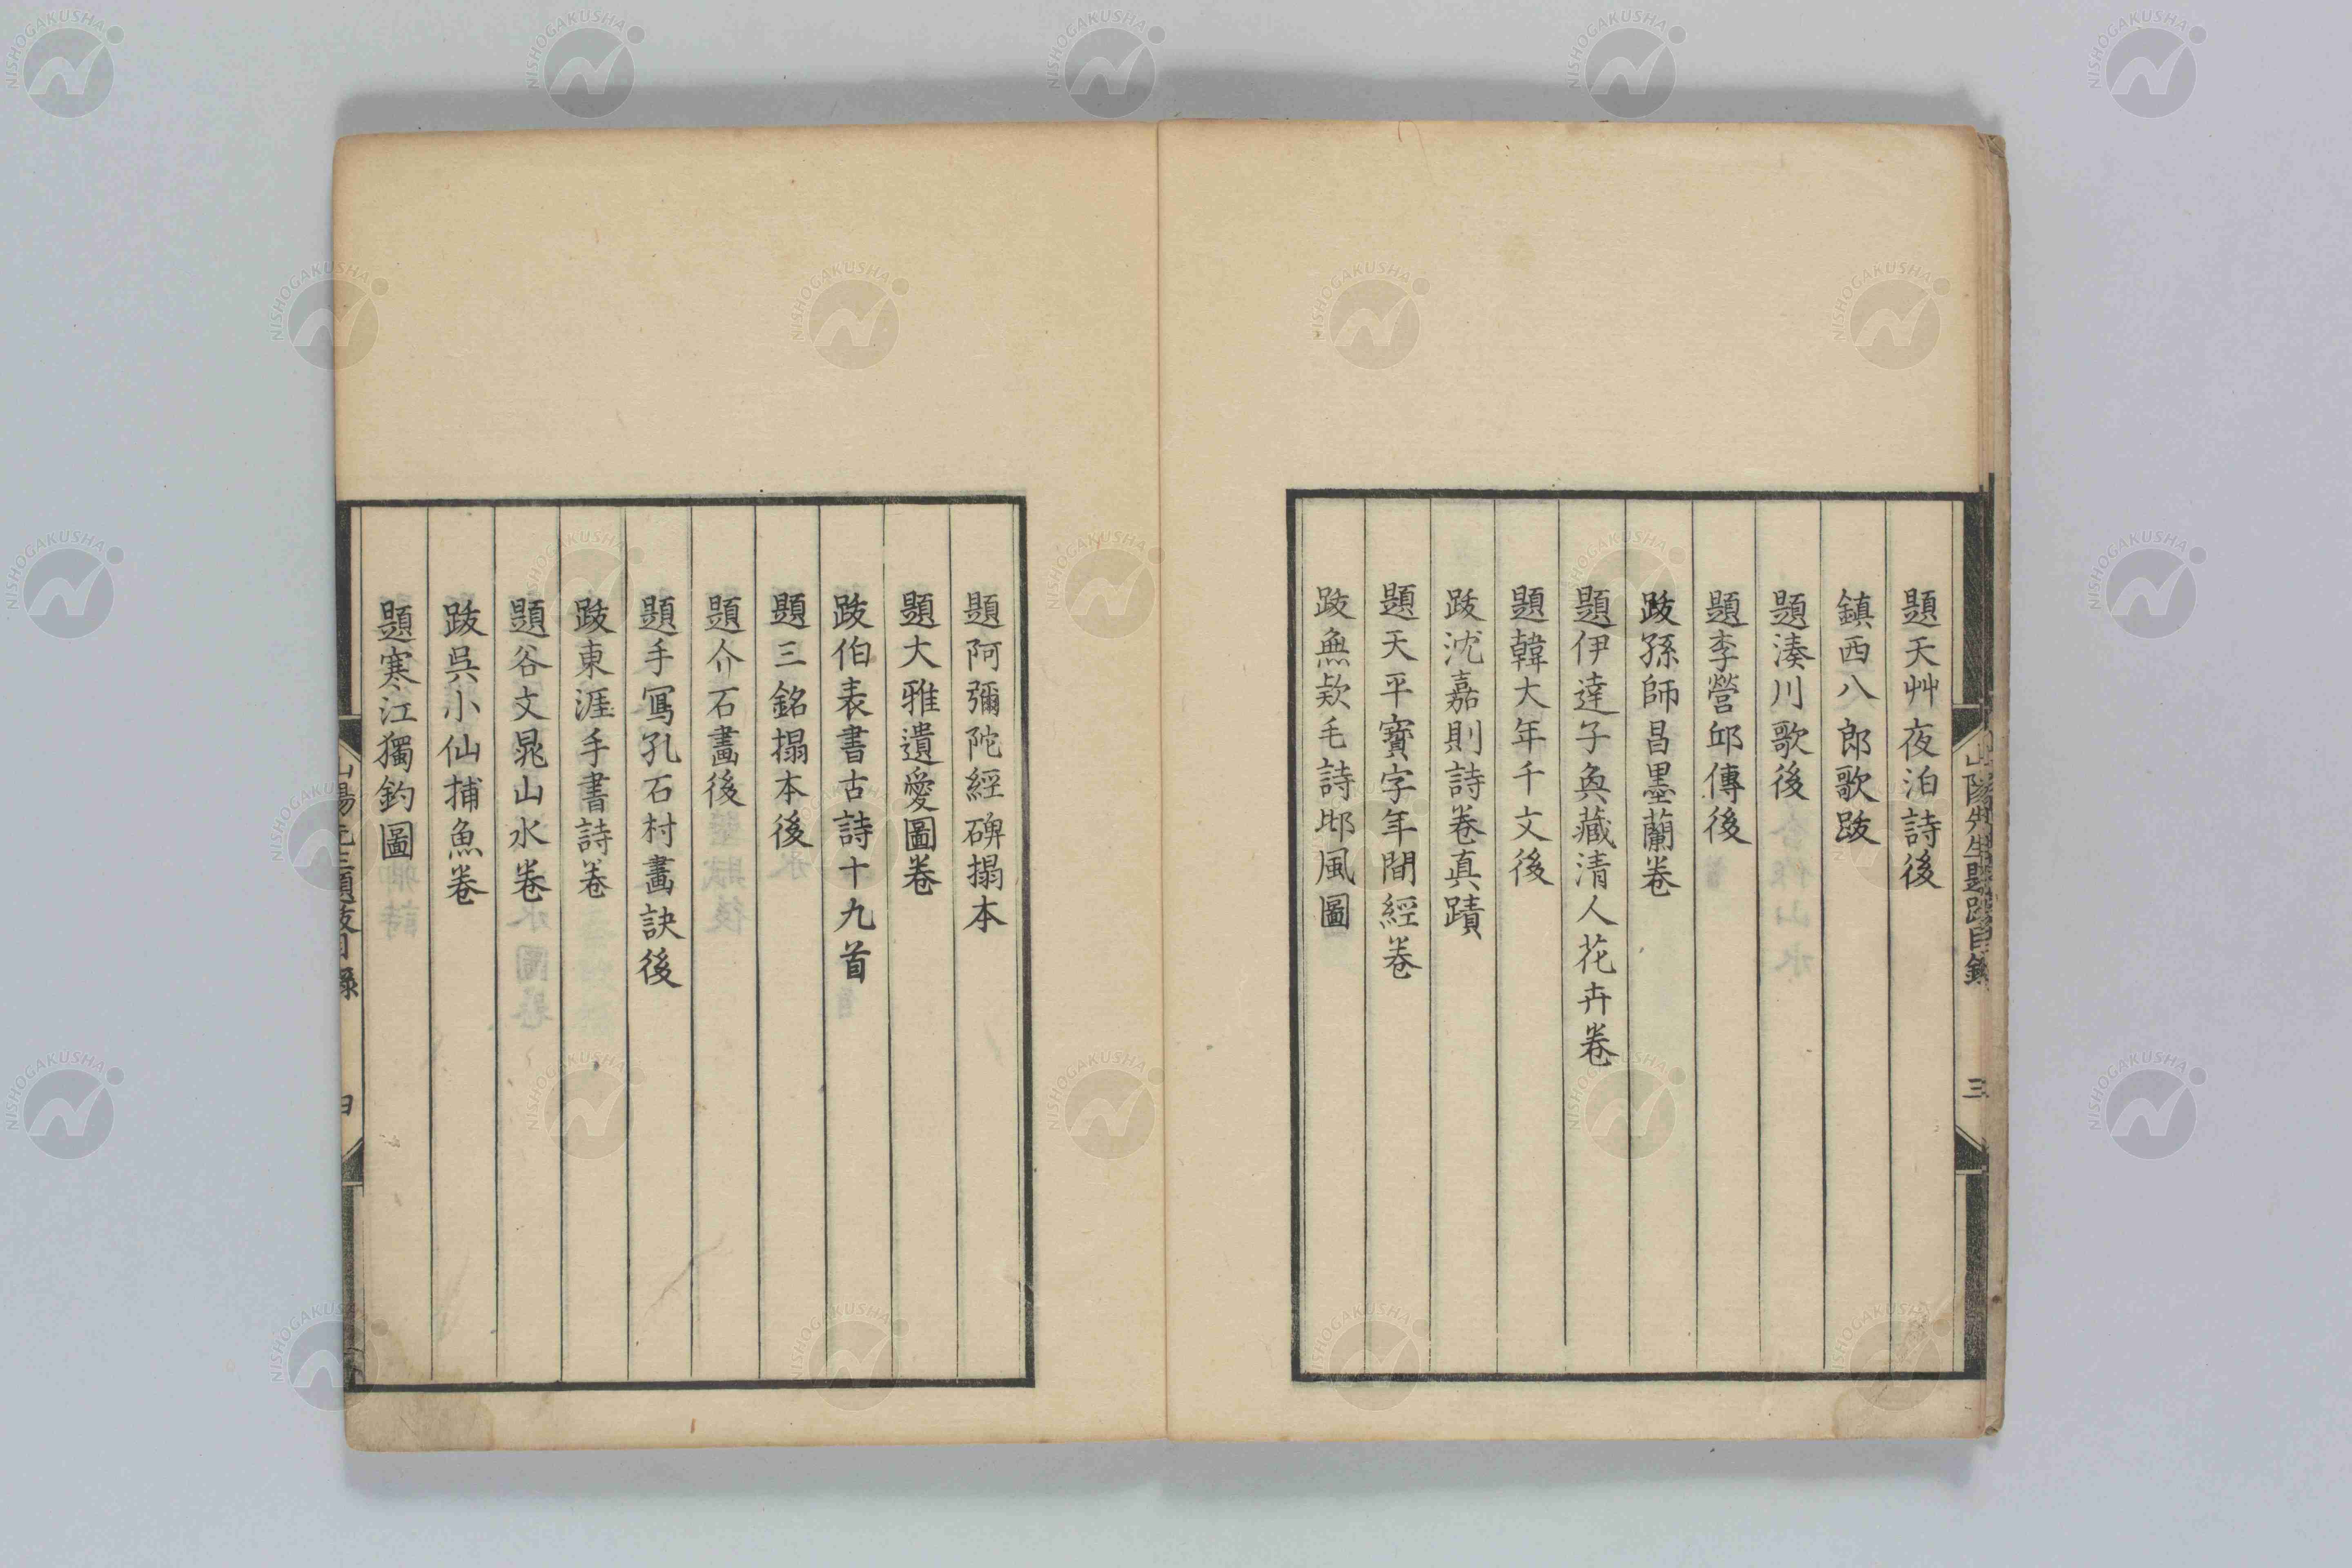 題天艸夜泊詩後
鎮西八郎歌跋
題湊川歌後
題李營邱傳後
跋孫師昌墨蘭卷
題伊達子奐藏清人花卉卷
題韓大年千文後
跋沈嘉則詩卷真蹟
題天平寶字年間經卷
跋無欵毛詩邶風圖
山陽先生題跋目錄
三
題阿彌陀經碑搨本
題大雅遺愛圖卷
跋伯表書古詩十九首
題三銘搨本後
題介石畫後
題手寫孔石村畫訣後
跋東涯手書詩卷
題谷文晁山水卷
跋吳小仙捕魚卷
題寒江獨釣圖
NISHOGAKUSHA